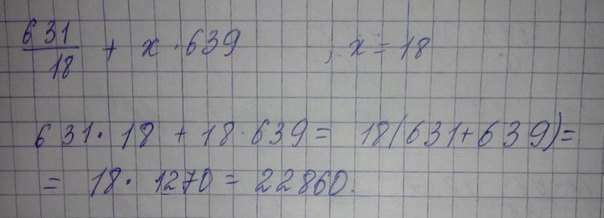 631/18 + x · 639 ; x = 18
631 · 18 + 18 · 639 = 18(631+639)=
= 18 · 1270 = 22860.